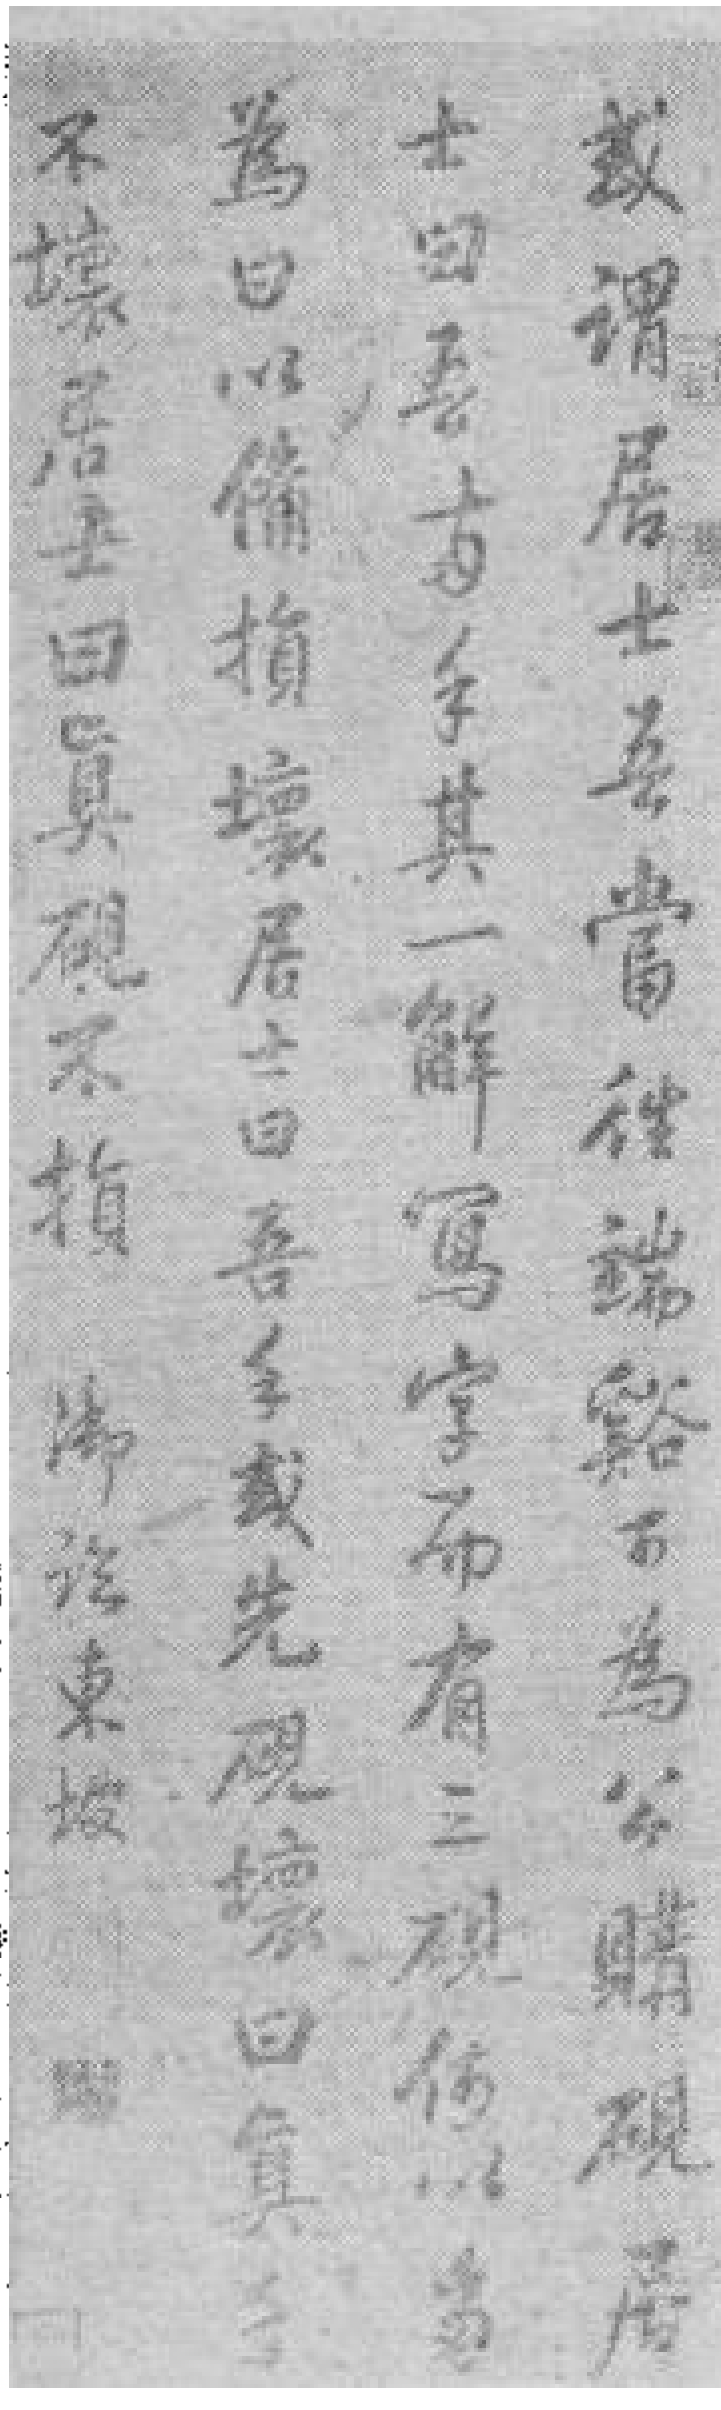 或謂居士吾當往端谿可為公購硯居
士曰吾兩手其一解寫字而有三硯何以多
為曰以備損壞居士曰吾手或先硯壞曰真手
不壞居士曰真硯不損 東坡